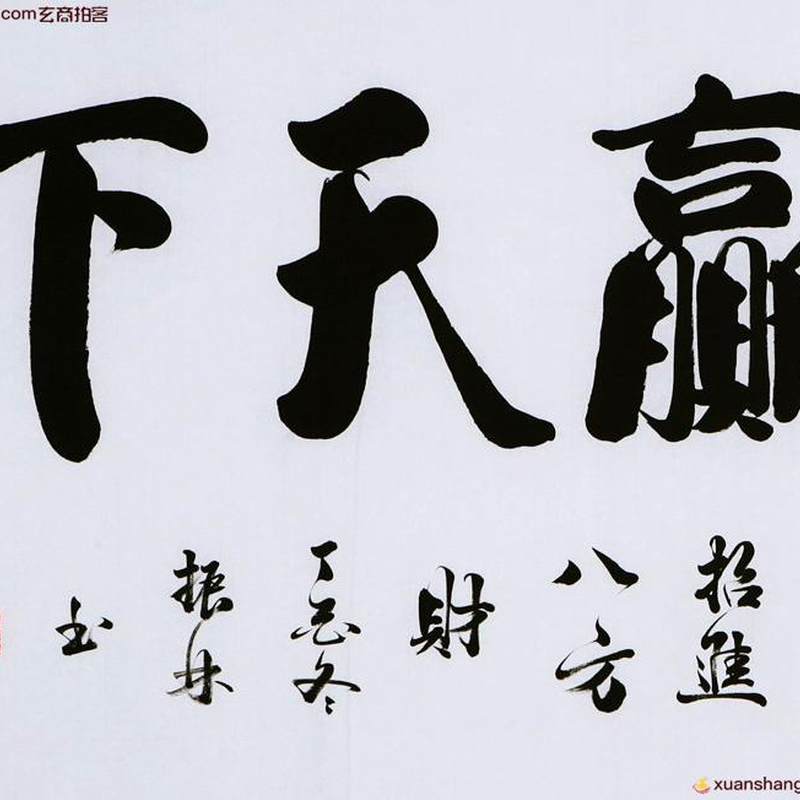 .com玄商拍客
贏天下
招進
八方
財
丁亥冬
振林
书
xuanshang